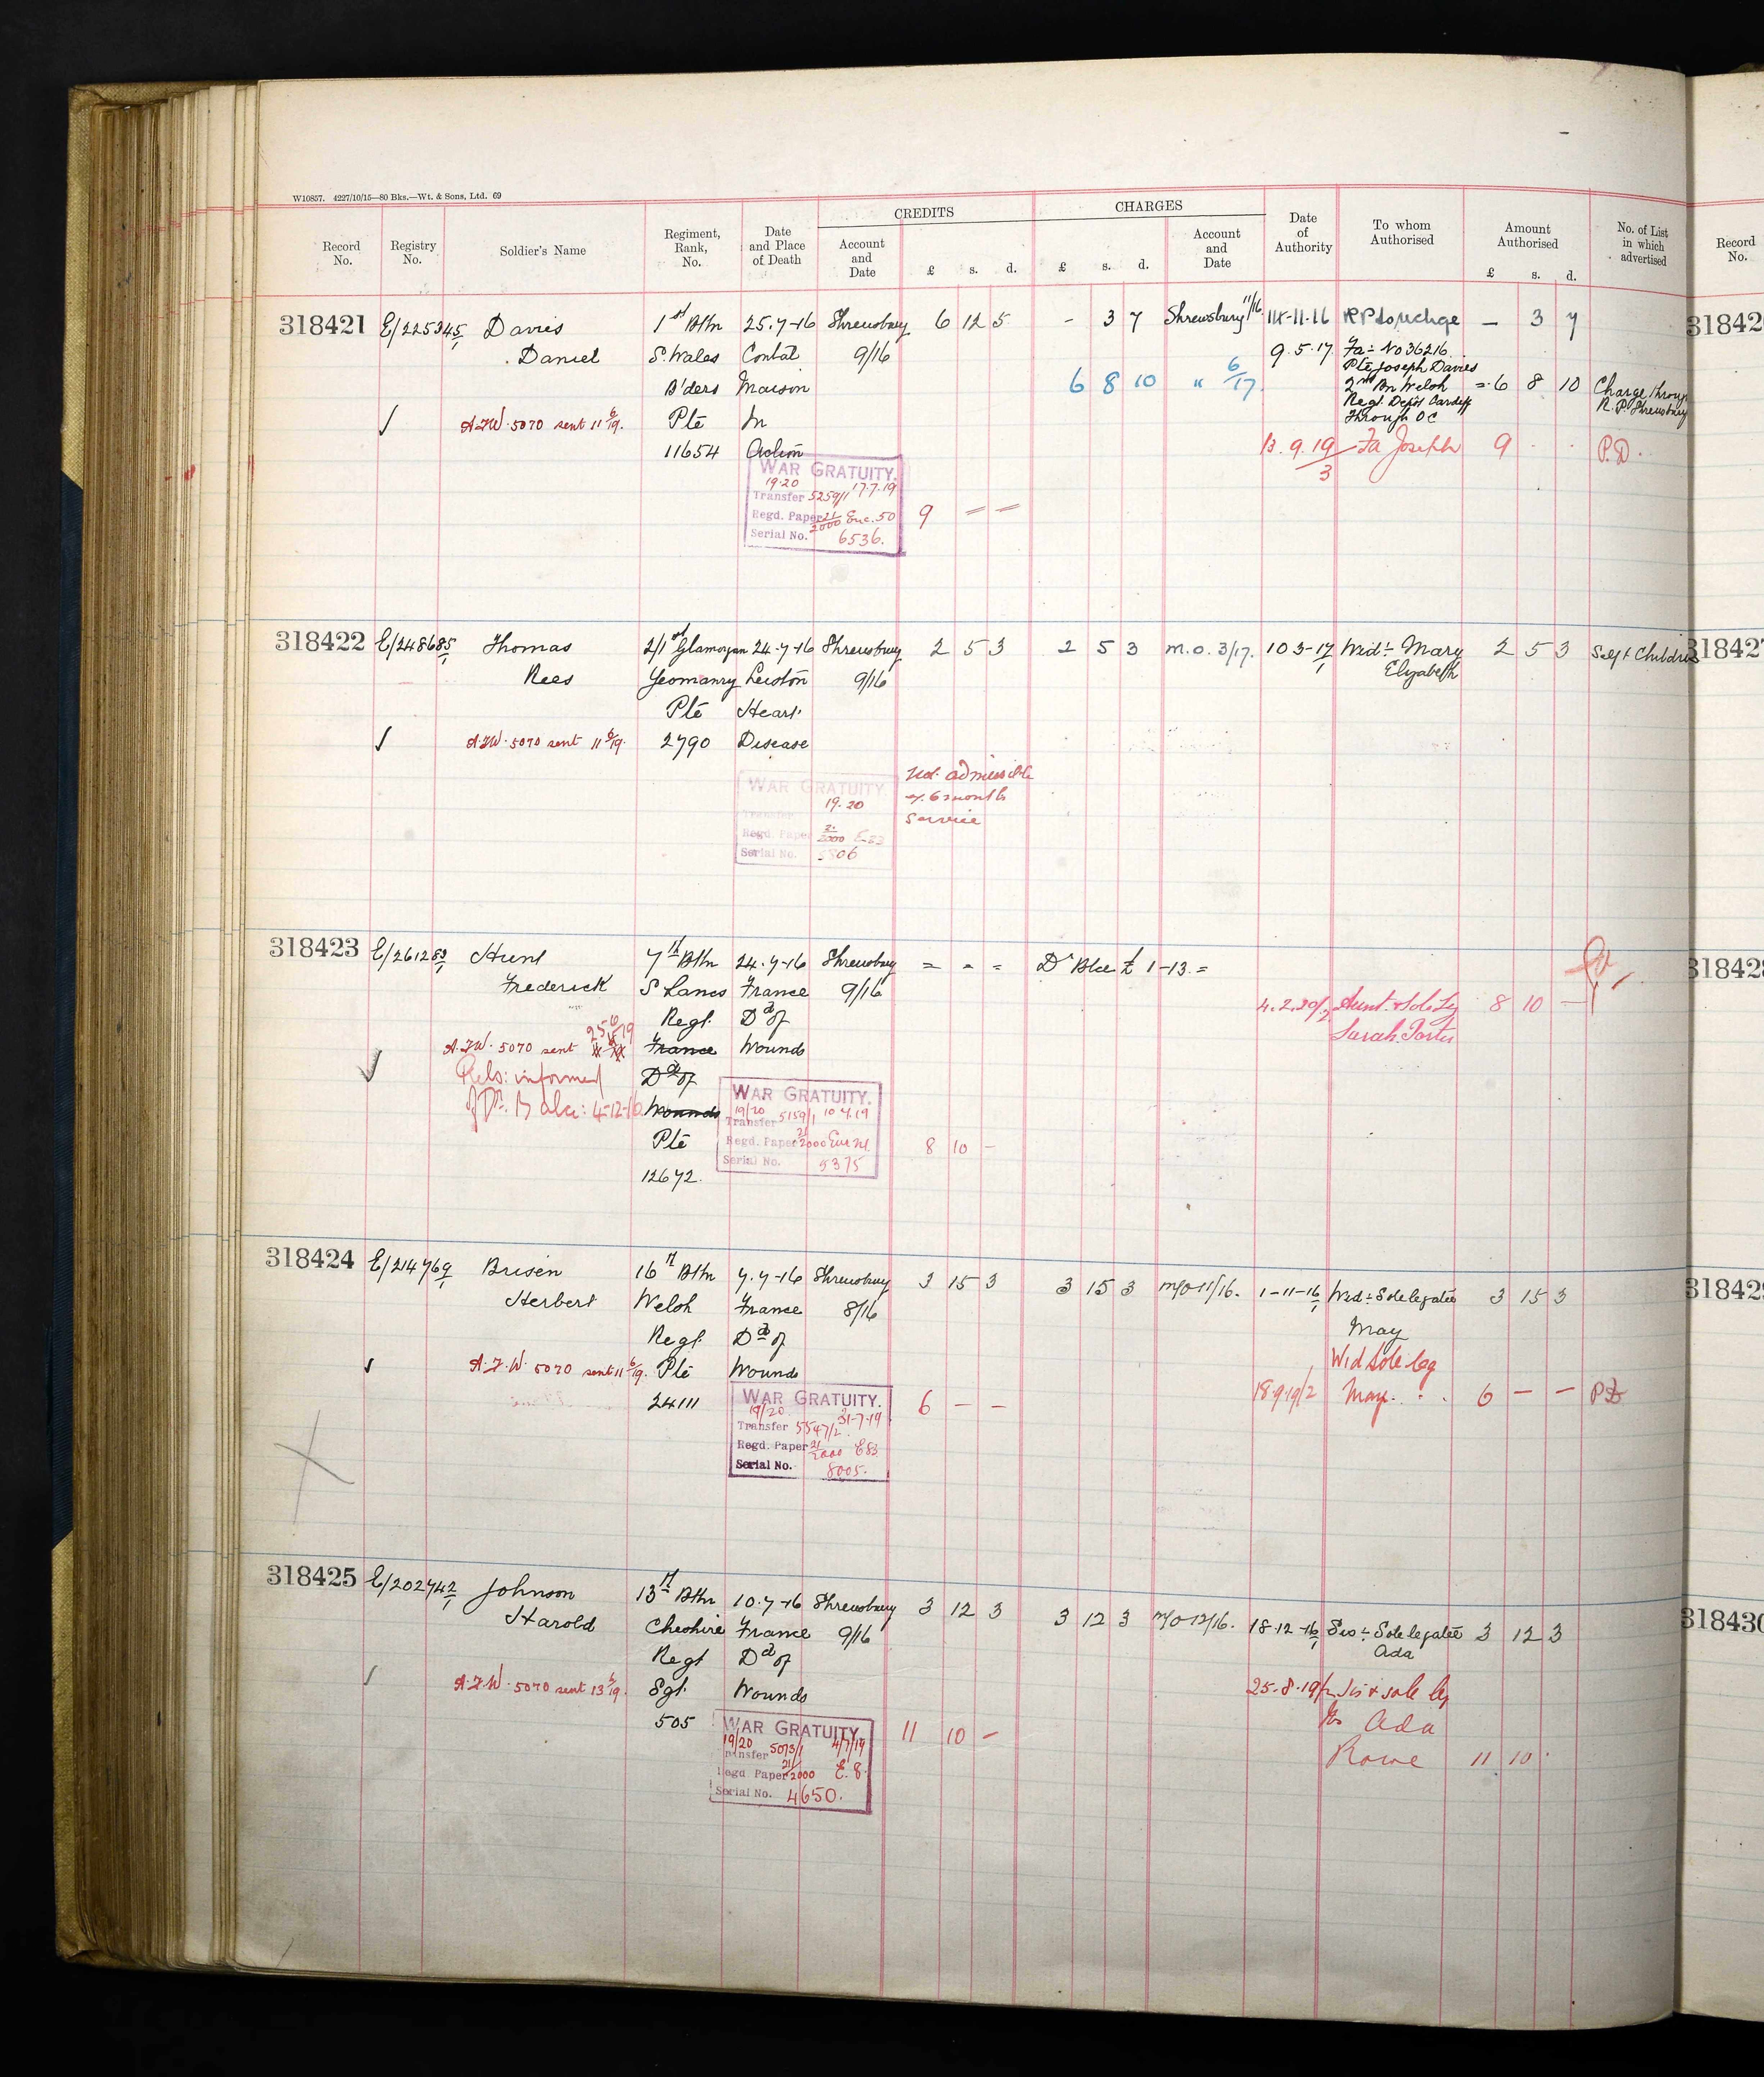 W10857. 4227/10/15—80 Bks.—Wt. & Sons, Ltd. 69
CREDITS CHARGES
Record No. Registry No. Soldier's Name Regiment, Rank, No. Date and Place of Death Account and Date £ s. d. £ s. d. Account and Date Date of Authority To whom Authorised Amount Authorised £ s. d. No. of List in which advertised Record No.
318421 E/225345/1 Davies 1st Bttn 25.7-16 Shrewsbury 6 12 5 - 3 7 Shrewsbury 11/16 -11-16 — 3 7
Daniel S. Wales Contal 9/16 9.5.17 Fa: No 36216
Pte Joseph Davies
B'ders Maison 6 8 10 " 6/17 2nd Bn Welsh = 6 8 10 Charge throug
Regl. Depot Cardiff R.P. Shrewsbury
through OC
A.F.W. 5070 sent 11 6/19. Pte In
11654 Action 13.9.19/3 Fa Joseph 9 . . P.D.
WAR GRATUITY.
19.20
Transfer 5259/1 17.7.19
Regd. Paper 21/2000 Enc. 50 9 = =
Serial No. 6536.
318422 E/248685/1 Thomas 2/1st Glamorgan 24.7-16 Shrewsbury 2 5 3 2 5 3 M.O. 3/17. 10 3-17/1 Wid: Mary 2 5 3 Self & Childre
Rees Yeomanry Leiston 9/16 Elizabeth
Pte Heart
A.F.W. 5070 sent 11 6/19. 2790 Disease
WAR GRATUITY Not admissible
19.20 6 months
Transfer service
Regd. Paper 2000
Serial No.
318423 E/261283/1 Hunt 7th Bttn 24.7-16 Shrewsbury = - = Dr Blce £ 1-13 =
Frederick S Lancs France 9/16 4.2.20/2 Aunt & Sole Leg 8 10 —
Regt. Dd of Sarah
A.F.W. 5070 sent 25 6/19 France Wounds
Rels: informed Dd of
of Dr. Balce: 4-12-16 Wounds
WAR GRATUITY.
19/20
Transfer 5159/1 10.7.19
Pte Regd. Paper 21/2000 8 10 -
Serial No. 5375
12672.
318424 E/214769/1 Brisen 16th Bttn 7.7-16 Shrewsbury 3 15 3 3 15 3 M/O 11/16. 1-11-16/1 Wid: Sole legatee 3 15 3
Herbert Welsh France 8/16 May
Regt. Dd of Wid Sole leg
A.F.W. 5070 sent 11 6/19. Pte Wounds 18.9.19/2 May. 6 — —
24111 6 — —
WAR GRATUITY.
19/20 31-7-19
Transfer 5547/2
Regd. Paper 21/2000 E83
Serial No. 8005.
318425 E/202742/1 Johnson 13th Bttn 10.7-16 Shrewsbury 3 12 3 3 12 3 M/O 12/16. 18-12-16/1 Sis: Sole legatee 3 12 3
Harold Cheshire France 9/16 Ada
Regt Dd of
A.F.W. 5070 sent 13 6/19. Sgt. Wounds 25-8-19/2 Sis & sole leg
505 Ada
Rowe 11 10
WAR GRATUITY. 11 10 -
19/20 4/7/19
Transfer 5073/1
Regd Paper 21/2000 E.8.
Serial No. 4650.
31842
31842
31842
31842
318430